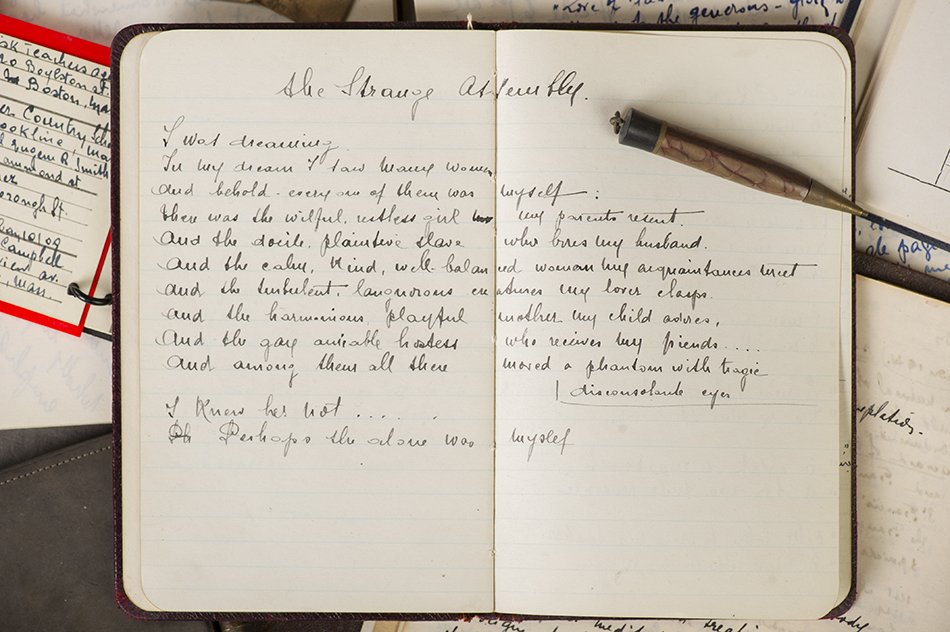 Teachers
Boylston st.
Boston,
Country
Eugene R. Smith
st
st.
Campbell
av.
Mass.
the generous -
The Strange Assembly.
I was dreaming.
In my dream I saw many women
And behold - every one of them was myself :
there was the wilful, restless girl my parents resent.
And the docile, plaintive slave who bores my husband.
And the calm, kind, well-balanced woman my acquaintances meet
And the turbulent, languorous creatures my lover clasps.
And the harmonious, playful mother my child adores,
And the gay amiable hostess who receives my friends....
And among them all there moved a phantom with tragic
disconsolate eyes
I knew her not ......
Perhaps she alone was myself